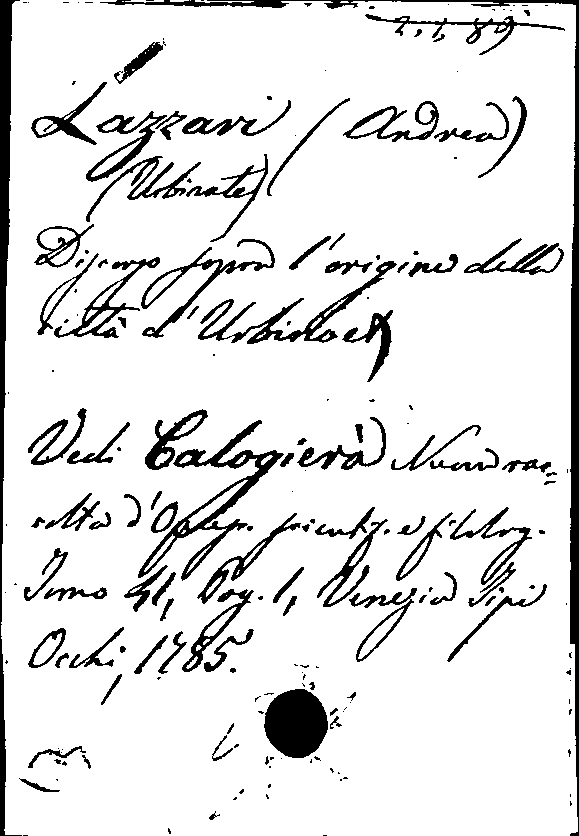 2.1.89
Lazzari (Andrea)
(Urbinate)
Discorso sopra l'origine della
città d'Urbino etc
Vedi Calogierà Nuova rac=
colta d'Opusc. scientif. e filolog.
Tomo 41, Pag. 1, Venezia Tipi
Occhi, 1785.